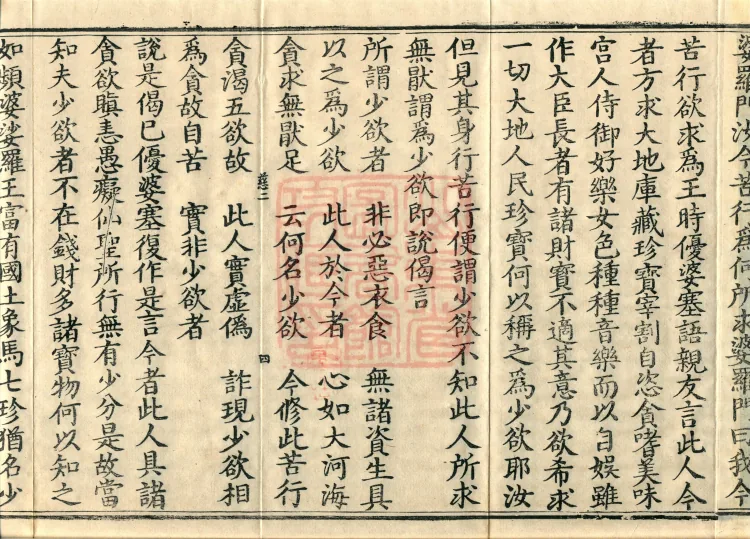 婆羅門法今苦行爲何所求婆羅門曰我今
苦行欲求爲王時優婆塞語親友言此人今
者方求大地庫藏珍寶宰割自恣貪嗜美味
宮人侍御好樂女色種種音樂而以自娛雖
作大臣長者有諸財寶不適其意乃欲希求
一切大地人民珍寶何以稱之爲少欲耶汝
但見其身行苦行便謂少欲不知此人所求
無猒謂爲少欲即說偈言
所謂少欲者 非必惡衣食 無諸資生具
以之爲少欲 此人於今者 心如大河海
貪求無猒足 云何名少欲 今修此苦行
慈二 四
貪渴五欲故 此人實虛僞 詐現少欲相
爲貪故自苦 實非少欲者
說是偈已優婆塞復作是言今者此人具諸
貪欲瞋恚愚癡仙聖所行無有少分是故當
知夫少欲者不在錢財多諸寶物何以知之
如頻婆娑羅王富有國土象馬七珍猶名少